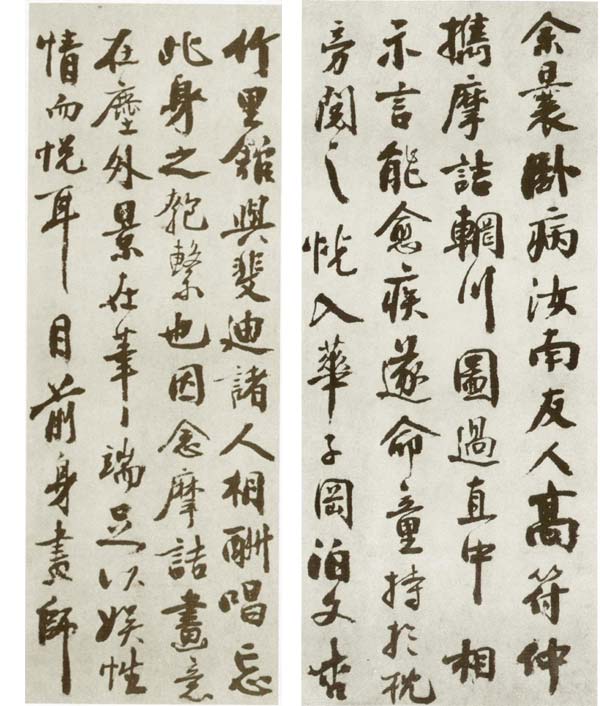 余曩臥病汝南友人高符仲
攜摩詰輞川圖過直中相
示言能愈疾遂命童持於枕
旁閱之恍入華子岡泊文杏
竹里館與斐迪諸人相酬唱忘
此身之匏繫也因念摩詰畫意
在塵外景在筆端足以娛性
情而悅耳目前身畫師